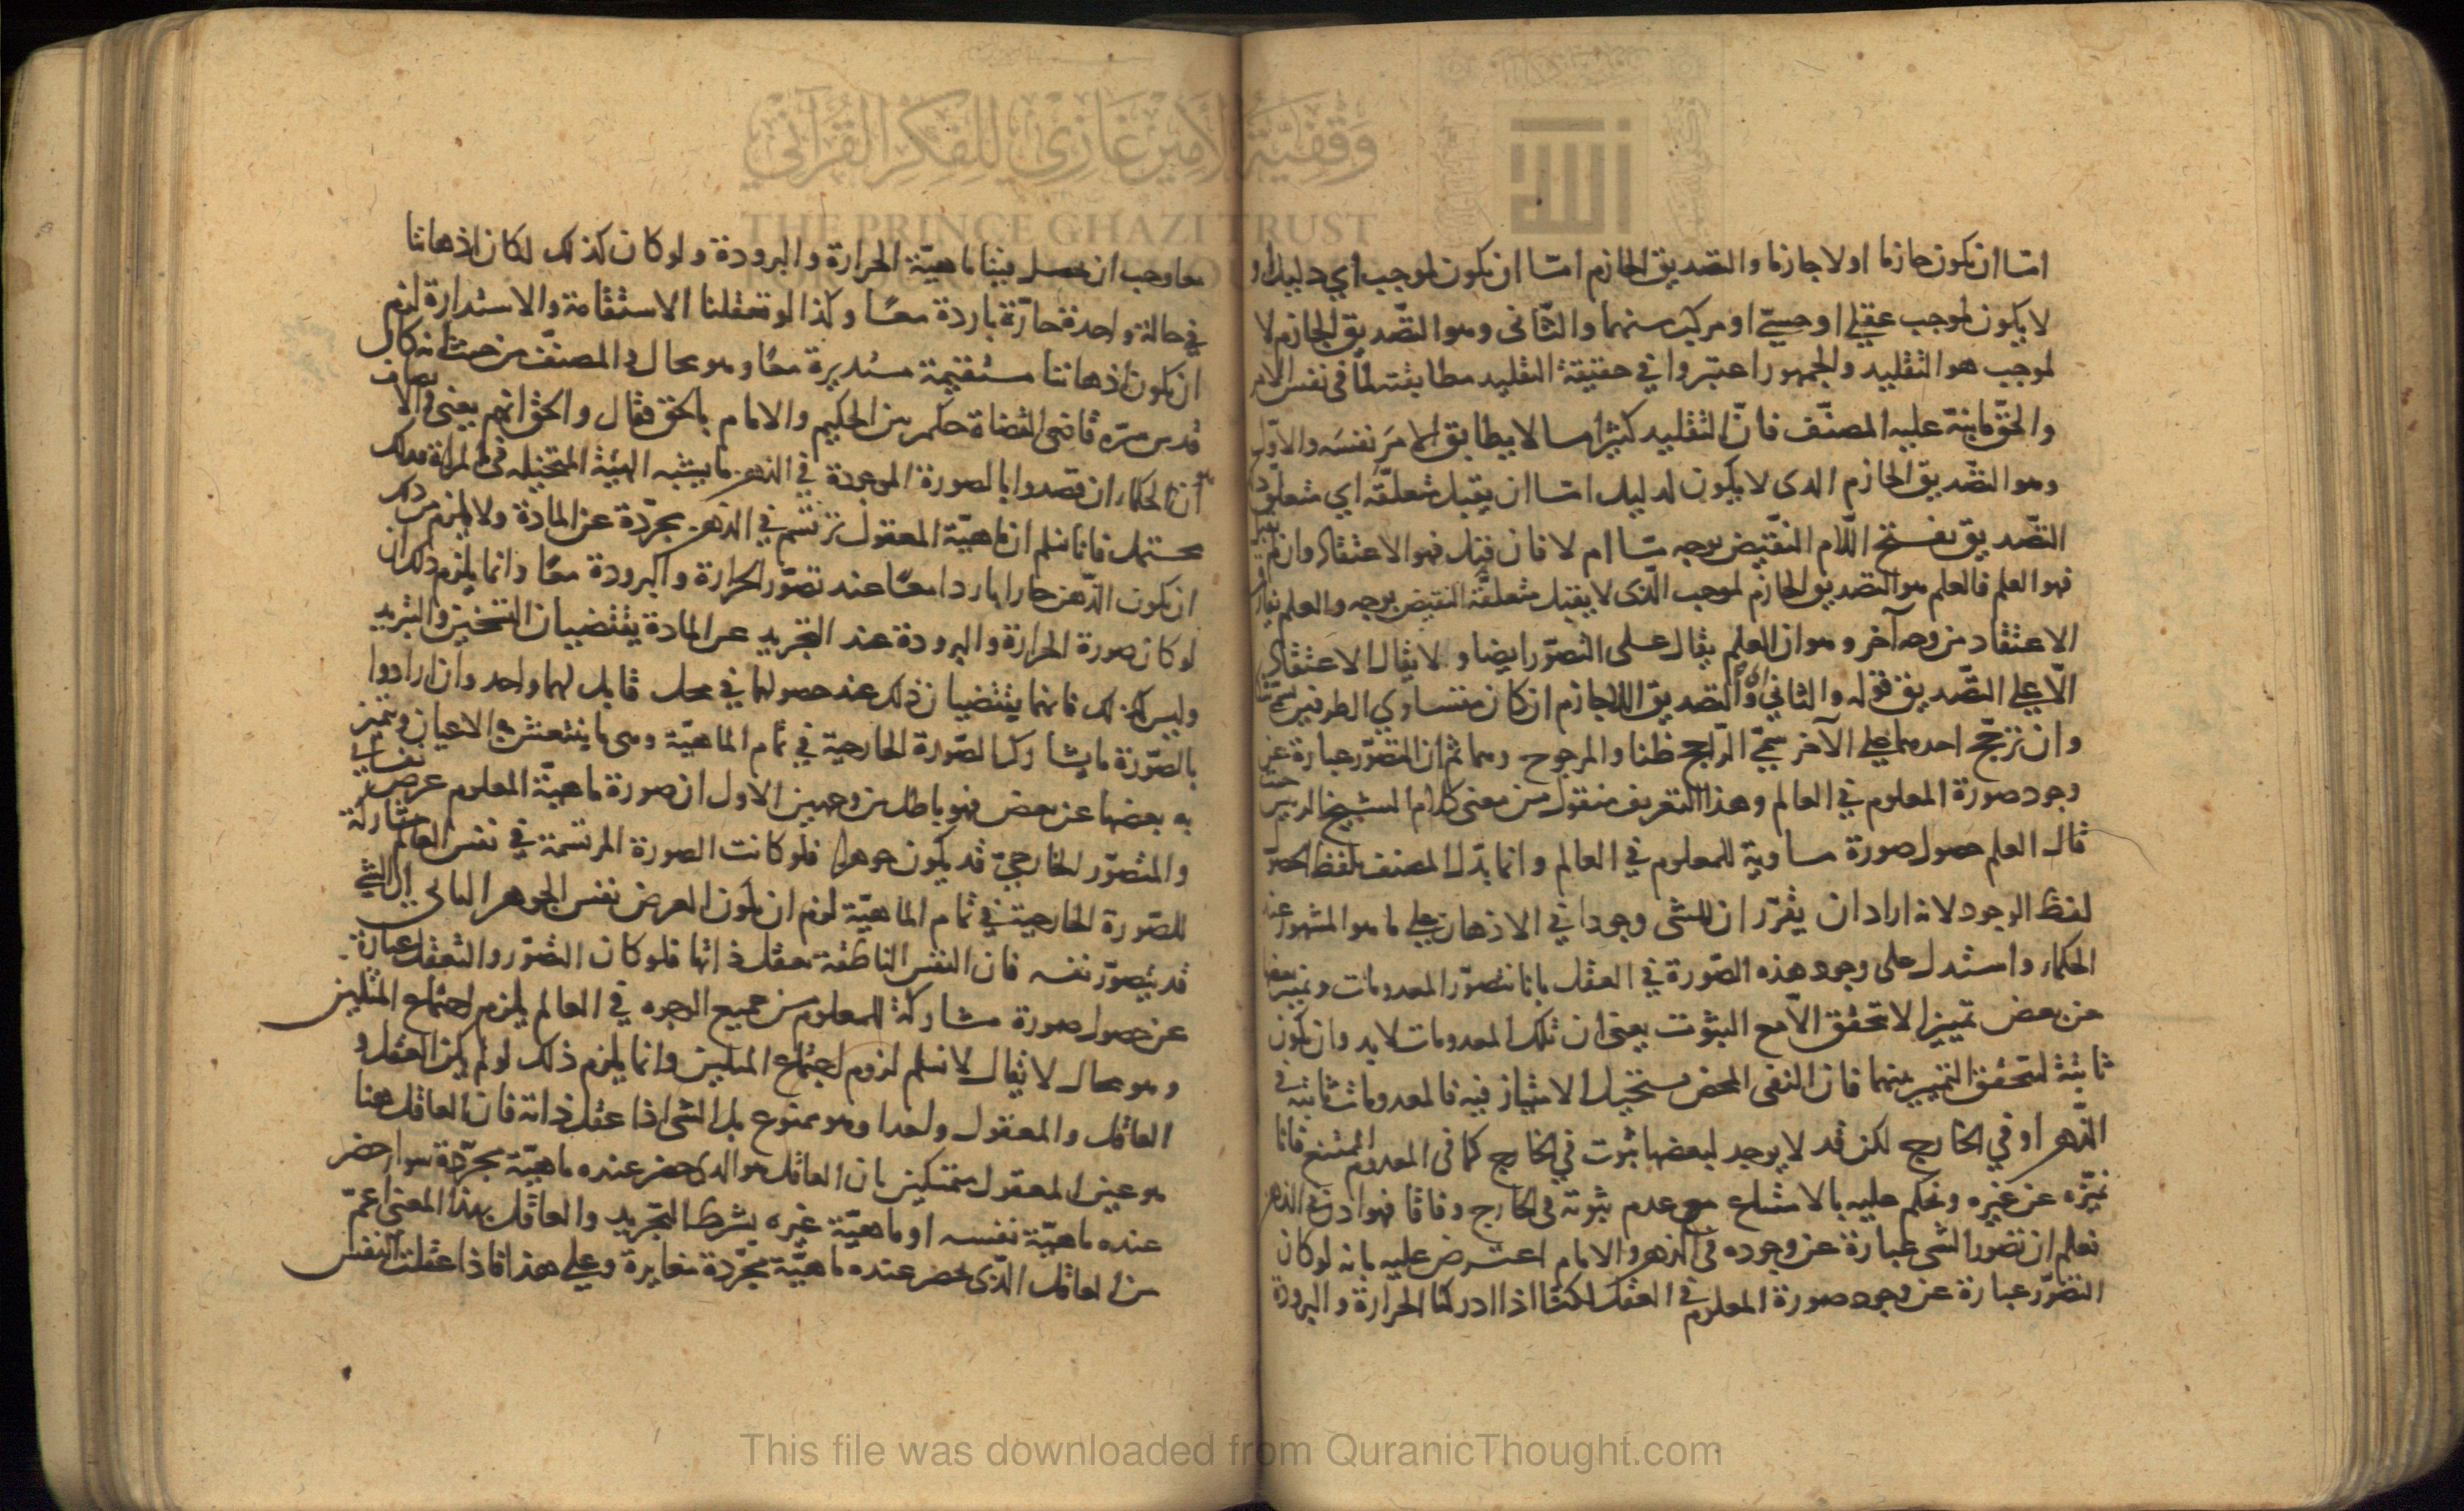 اما ان يكون جازما او لا جازما والتصديق الجازم امّا ان يكون لموجب اي دليل او
لا يكون لموجب عقلي او حسّي او مركب منهما والثاني وهو التّصديق الجازم لا
لموجب هو التقليد والجمهور اعتبروا في حقيقة التقليد مطابقته لما في نفس الامر
والحقّ ما نبّه عليه المصنّف فانّ التقليد كثيرا ما لا يطابق الامرَ نفسَه والاوّل
وهو التّصديق الجازم الذى لا يكون لدليل امّا ان يقبل متعلّقه اي متعلق
التّصديق بفتح اللّام النقيض بوجه مّا ام لا فان قبل فهو الاعتقاد وان لم يقبل
فهو العلم فالعلم هو التصديق الجازم لموجب الّذى لا يقبل متعلقه النقيض بوجه والعلم يفارق
الاعتقاد من وجه آخر وهو ان العلم يقال على التصوّر ايضا ولا يقال الاعتقاد
الّا على التّصديق قوله والثاني اي التصديق اللاجازم ان كان متساوي الطرفين سمّي شكا
وان ترجّح احدهما على الآخر سمّي الرّاجح ظنا والمرجوح وهما ثم ان التصوّر عبارة عن
وجود صورة المعلوم في العالم وهذا التعريف منقول من معنى كلام الشيخ الرئيس حيث
قال العلم حصول صورة مساوية للمعلوم في العالم وانما بدّل المصنف لفظ الحصول
لفظ الوجود لانه اراد ان يقرّر ان للشى وجودا في الاذهان على ما هو المشهور عند
الحكماء واستدل على وجود هذه الصّورة في العقل بانا نتصوّر المعدومات ونميز بعضها
عن بعض تمييزا لا تحقق الّا مع الثبوت يعنى ان تلك المعدومات لا بد وان يكون
ثابتة لتحقق التمييز بينهما فان النفى المحض يستحيل الامتياز فيه فالمعدومات ثابتة في
الذّهن او في الخارج لكن قد لا يوجد لبعضها ثبوت في الخارج كما فى المعدوم الممتنع فانا
نميّزه عن غيره ونحكم عليه بالامتناع مع عدم ثبوته فى الخارج وفاقا فهو اذن في الذهن
نعلم ان تصوّر الشى عبارة عن وجوده فى الذهن والامام اعترض عليه بانه لو كان
التصوّر عبارة عن وجود صورة المعلوم في العقل لكنّا اذا ادركنا الحرارة والبرودة
معا وجب ان يحصل فينا ماهيّة الحرارة والبرودة ولو كان كذلك لكان اذهاننا
في حالة واحدة حارّة باردة معًا وكذا لو تعقلنا الاستقامة والاستدارة لزم
ان يكون اذهاننا مستقيمة مستديرة معًا وهو محال المصنّف من حيث انه كان
قدس سرّه قاضى القضاة حكم بين الحكيم والامام بالحق فقال والحق انهم يعنى
انّ الحكماء ان قصدوا بالصورة الموجودة في الذهن ما يشبه الهيئة المتخيله فى المراة فذلك
محتمل فانا نسلم ان ماهيّة المعقول ترتسم في الذهن مجرّدة عن المادة ولا يلزم من ذلك
ان يكون الذّهن حارا باردا معًا عند تصوّر الحرارة والبرودة معًا وانما يلزم ذلك ان
لو كان صورة الحرارة والبرودة عند التجريد عن المادة يقتضيان التسخين والتبريد
وليس كذلك فانهما يقتضيان ذلك عند حصولهما في محل قابل لهما واحد وان ارادوا
بالصّورة ما يشارك الصّورة الخارجية في تمام الماهيّة وهى ما ينتعش به الاعيان ويتميز
به بعضها عن بعض فهو باطل من وجهين الاول ان صورة ماهيّة المعلوم عرض نفساني
والمتصوّر الخارجيّ قد يكون جوهرا فلو كانت الصورة المرتسمة في نفس العالم مشاركة
للصّورة الخارجية في تمام الماهيّة لزم ان يكون العرض نفس الجوهر الثانى ان الشي
قد يتصوّر نفسه فان النفس الناطقة تعقل ذاتها فلو كان التصوّر والتعقل عبارة
عن حصول صورة مشاركة للمعلوم من جميع الوجوه في العالم يلزم اجتماع المثلين
وهو محال لا يقال لا نسلم لزوم اجتماع المثلين وانما يلزم ذلك لو لم يكن العقل و
العاقل والمعقول واحدا وهو ممنوع بل الشى اذا عقل ذاته فان العاقل هنا
هو عين المعقول متمسكين بان العاقل هو الذى حضر عنده ماهيّة مجرّدة سوا حضر
عنده ماهيّة نفسه او ماهيّة غيره بشرط التجريد والعاقل بهذا المعنى اعمّ
من العاقل الّذى يحضر عنده ماهيّة مجرّدة مغايرة وعلى هذا فاذا عقلت النفس
وقفية الأمير غازي للفكر القرآني
THE PRINCE GHAZI TRUST
This file was downloaded from QuranicThought.com